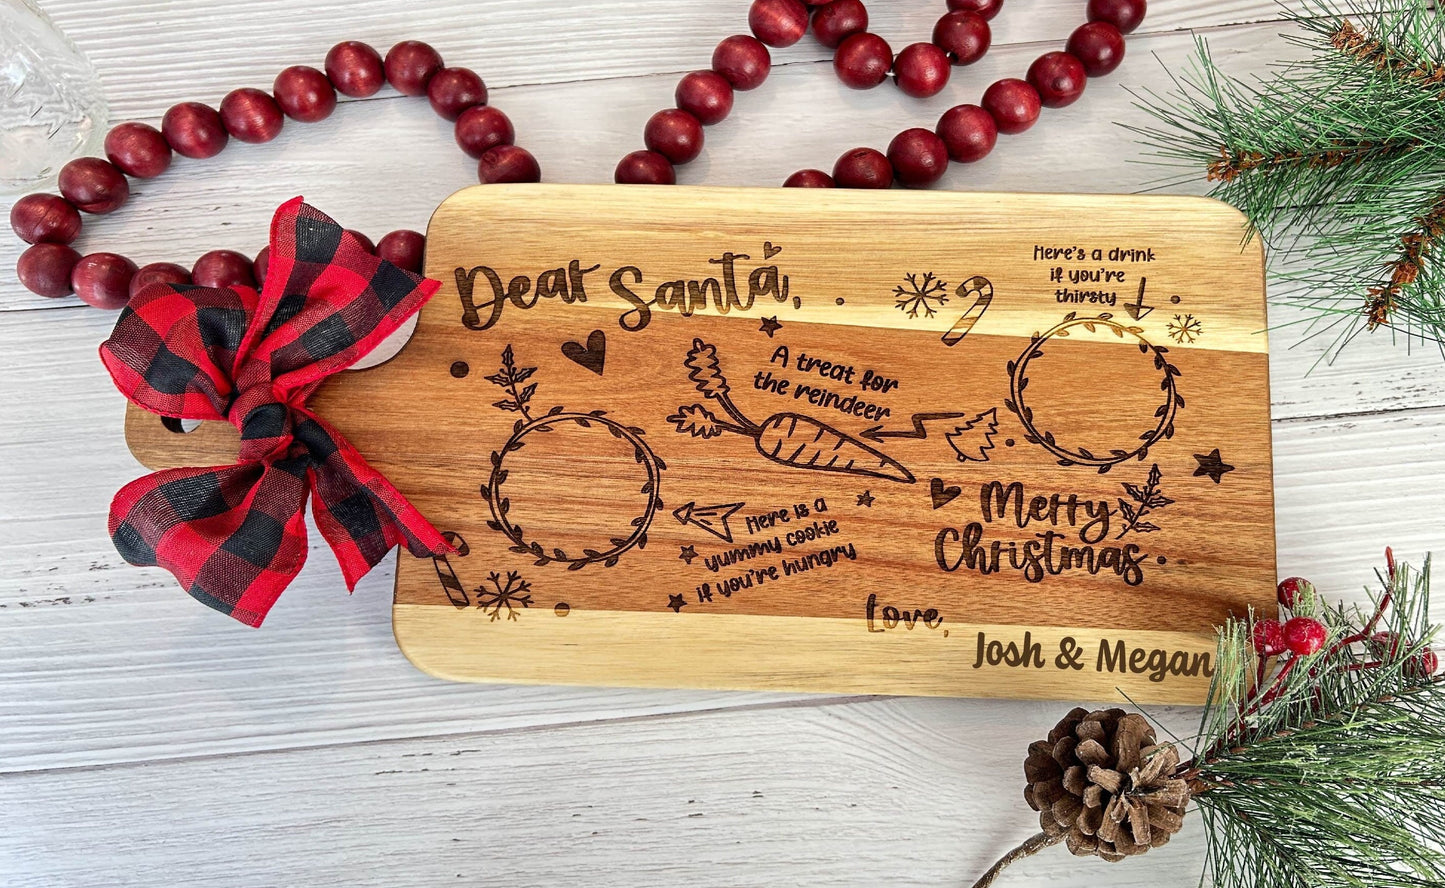 Dear Santa,
Here's a drink
if you're
thirsty
A treat for
the reindeer
Here is a
yummy cookie
if you're hungry
Merry
Christmas
Love,
Josh & Megan